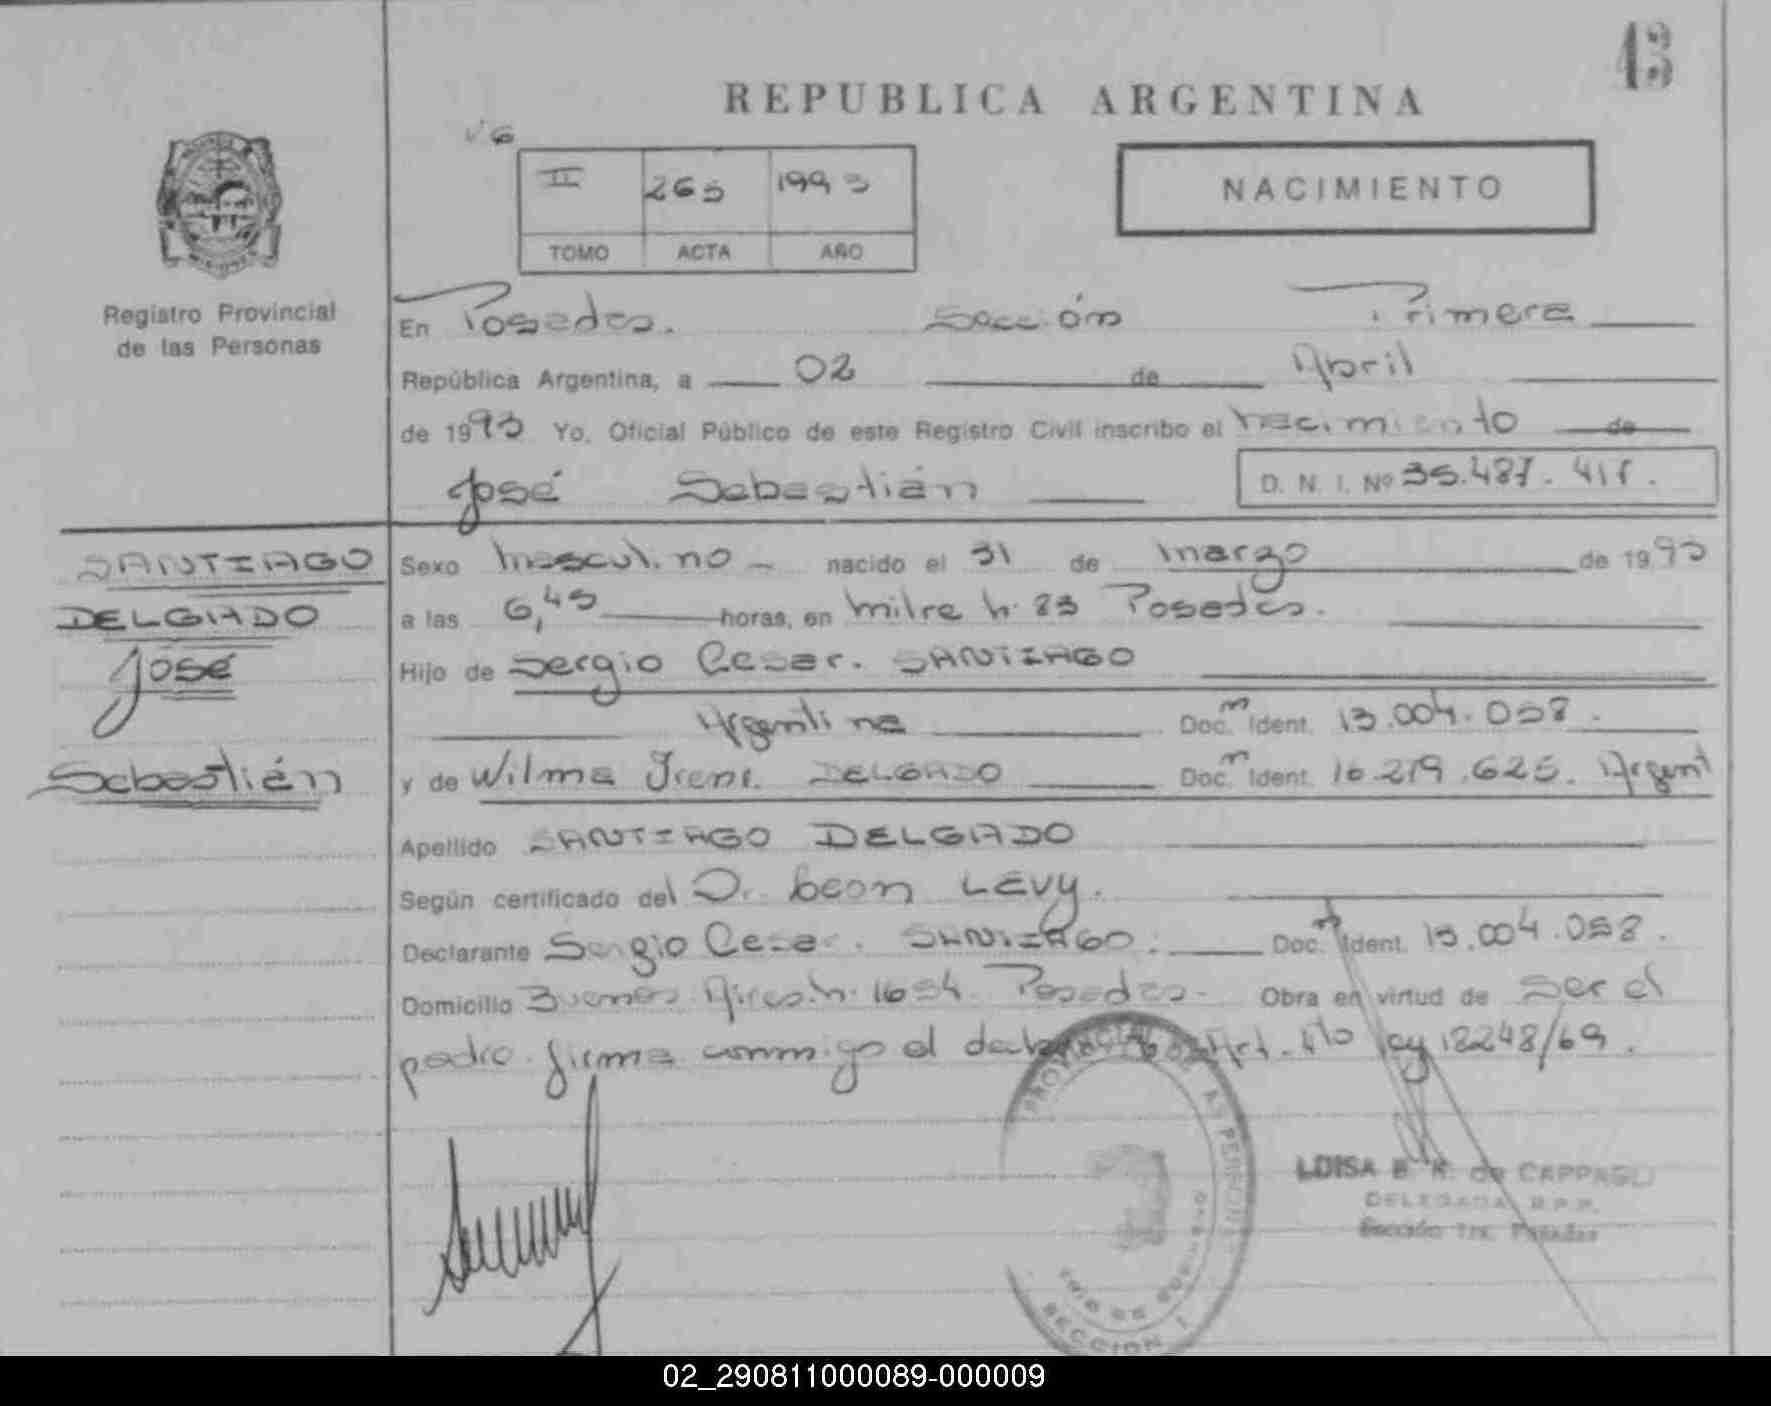 43
REPUBLICA ARGENTINA
II 265 1993
TOMO ACTA AÑO
NACIMIENTO
MISIONES
Registro Provincial
de las Personas
En Posadas. Sección Primera
República Argentina, a 02 de Abril
de 1993 Yo, Oficial Público de este Registro Civil inscribo el nacimiento de
José Sebastián D. N. I. Nº 35.487.
SANTIAGO
DELGADO
José
Sebastián
Sexo masculino nacido el 31 de marzo de 1993
a las 6,45 horas, en mitre n. 23 Posadas.
Hijo de Sergio Cesar. SANTIAGO
Argentina Doc. m Ident. 13.004.058.
y de Wilma Irene. DELGADO Doc. m Ident. 16.219.625. Argent
Apellido SANTIAGO DELGADO
Según certificado del D. LEVY.
Declarante Sergio Cesar. SANTIAGO. Doc. Ident. 13.004.058.
Domicilio Buenos Aires n. 1654. Posadas. Obra en virtud de Ser el
padre. firma conmigo el Art. ley 18248/69.
PROVINCIAL DE
SECCION 1
LUISA E. R. de CAPPAGLI
DELEGADA R.P.P.
Sección 1ra. Posadas
02_290811000089-000009